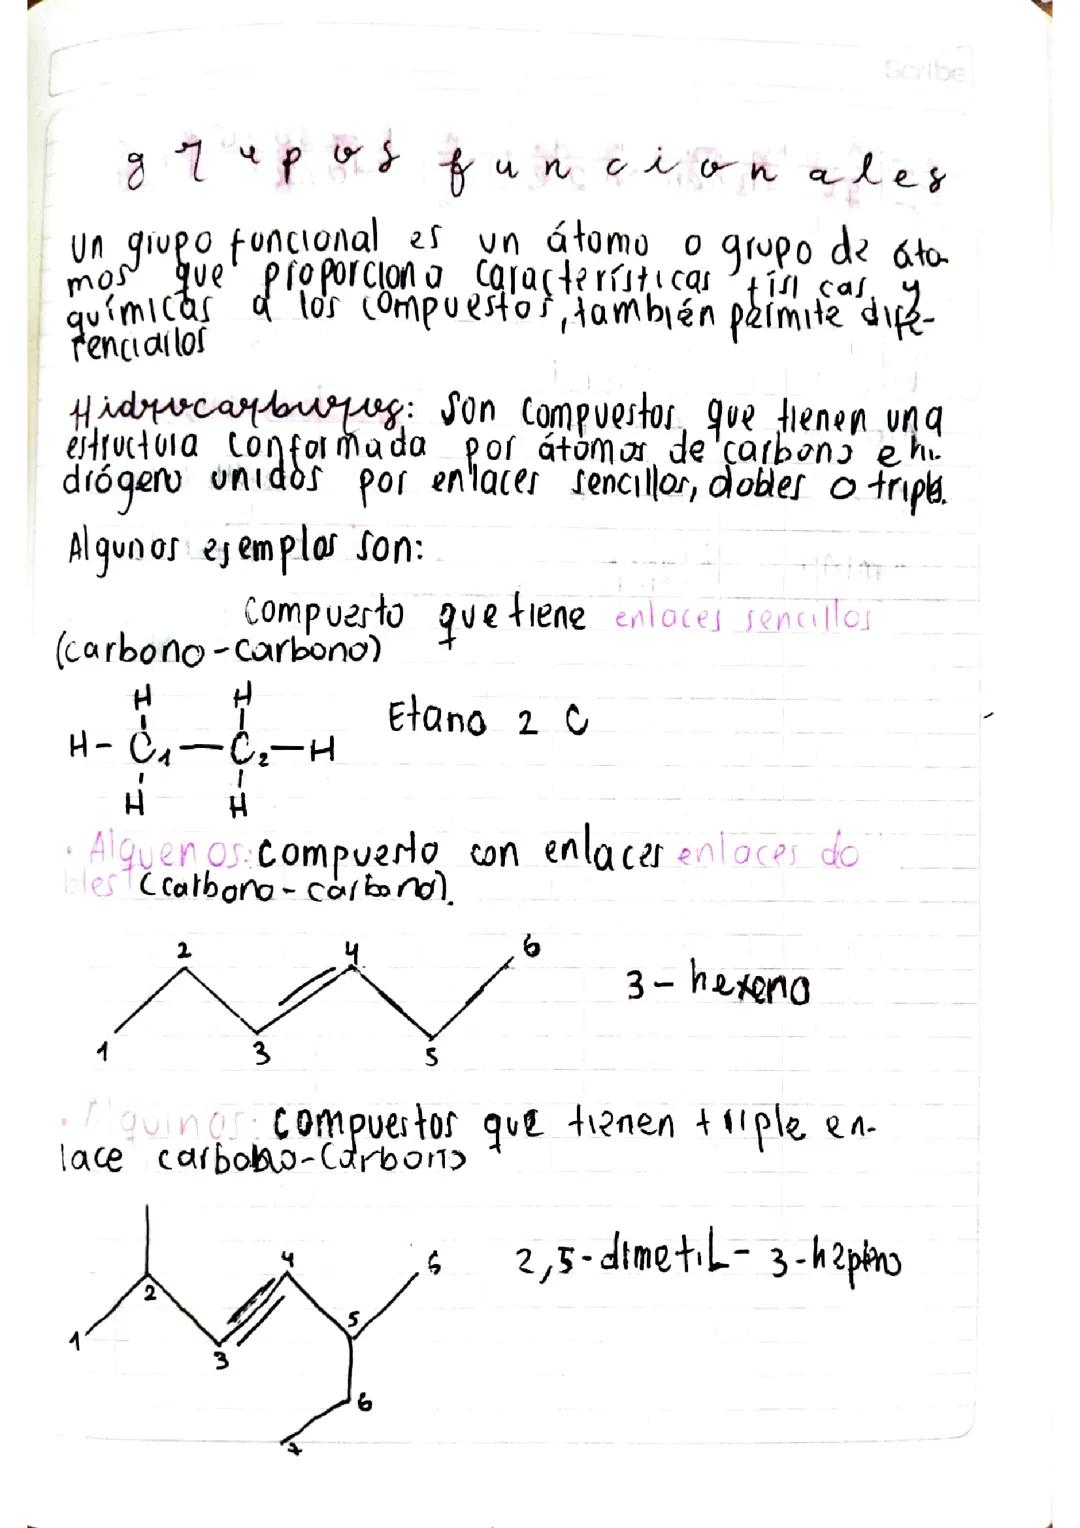 Scribe
grupos funcionales
un grupo funcional es un átomo o grupo de áto
mos que proporciona características físicas y
químicas a los compuestos, también permite dife-
renciarlos
Hidrocarburos: Son compuestos que tienen una
estructura conformada por átomos de carbono e hi-
drógeno unidos por enlaces sencillos, dobles o triples.
Algunos ejemplos son:
Compuesto que tiene enlaces sencillos
(carbono-carbono)
H H
H-C1-C2-H Etano 2 C
H H
• Alquenos: compuesto con enlaces enlaces do
bles (carbono-carbono).
2 4 6
3-hexeno
1 3 5
• Alquinos: compuestos que tienen triple en-
lace carbono-Carbono
4 6 2,5-dimetil-3-heptino
2 5
1 3
6
7